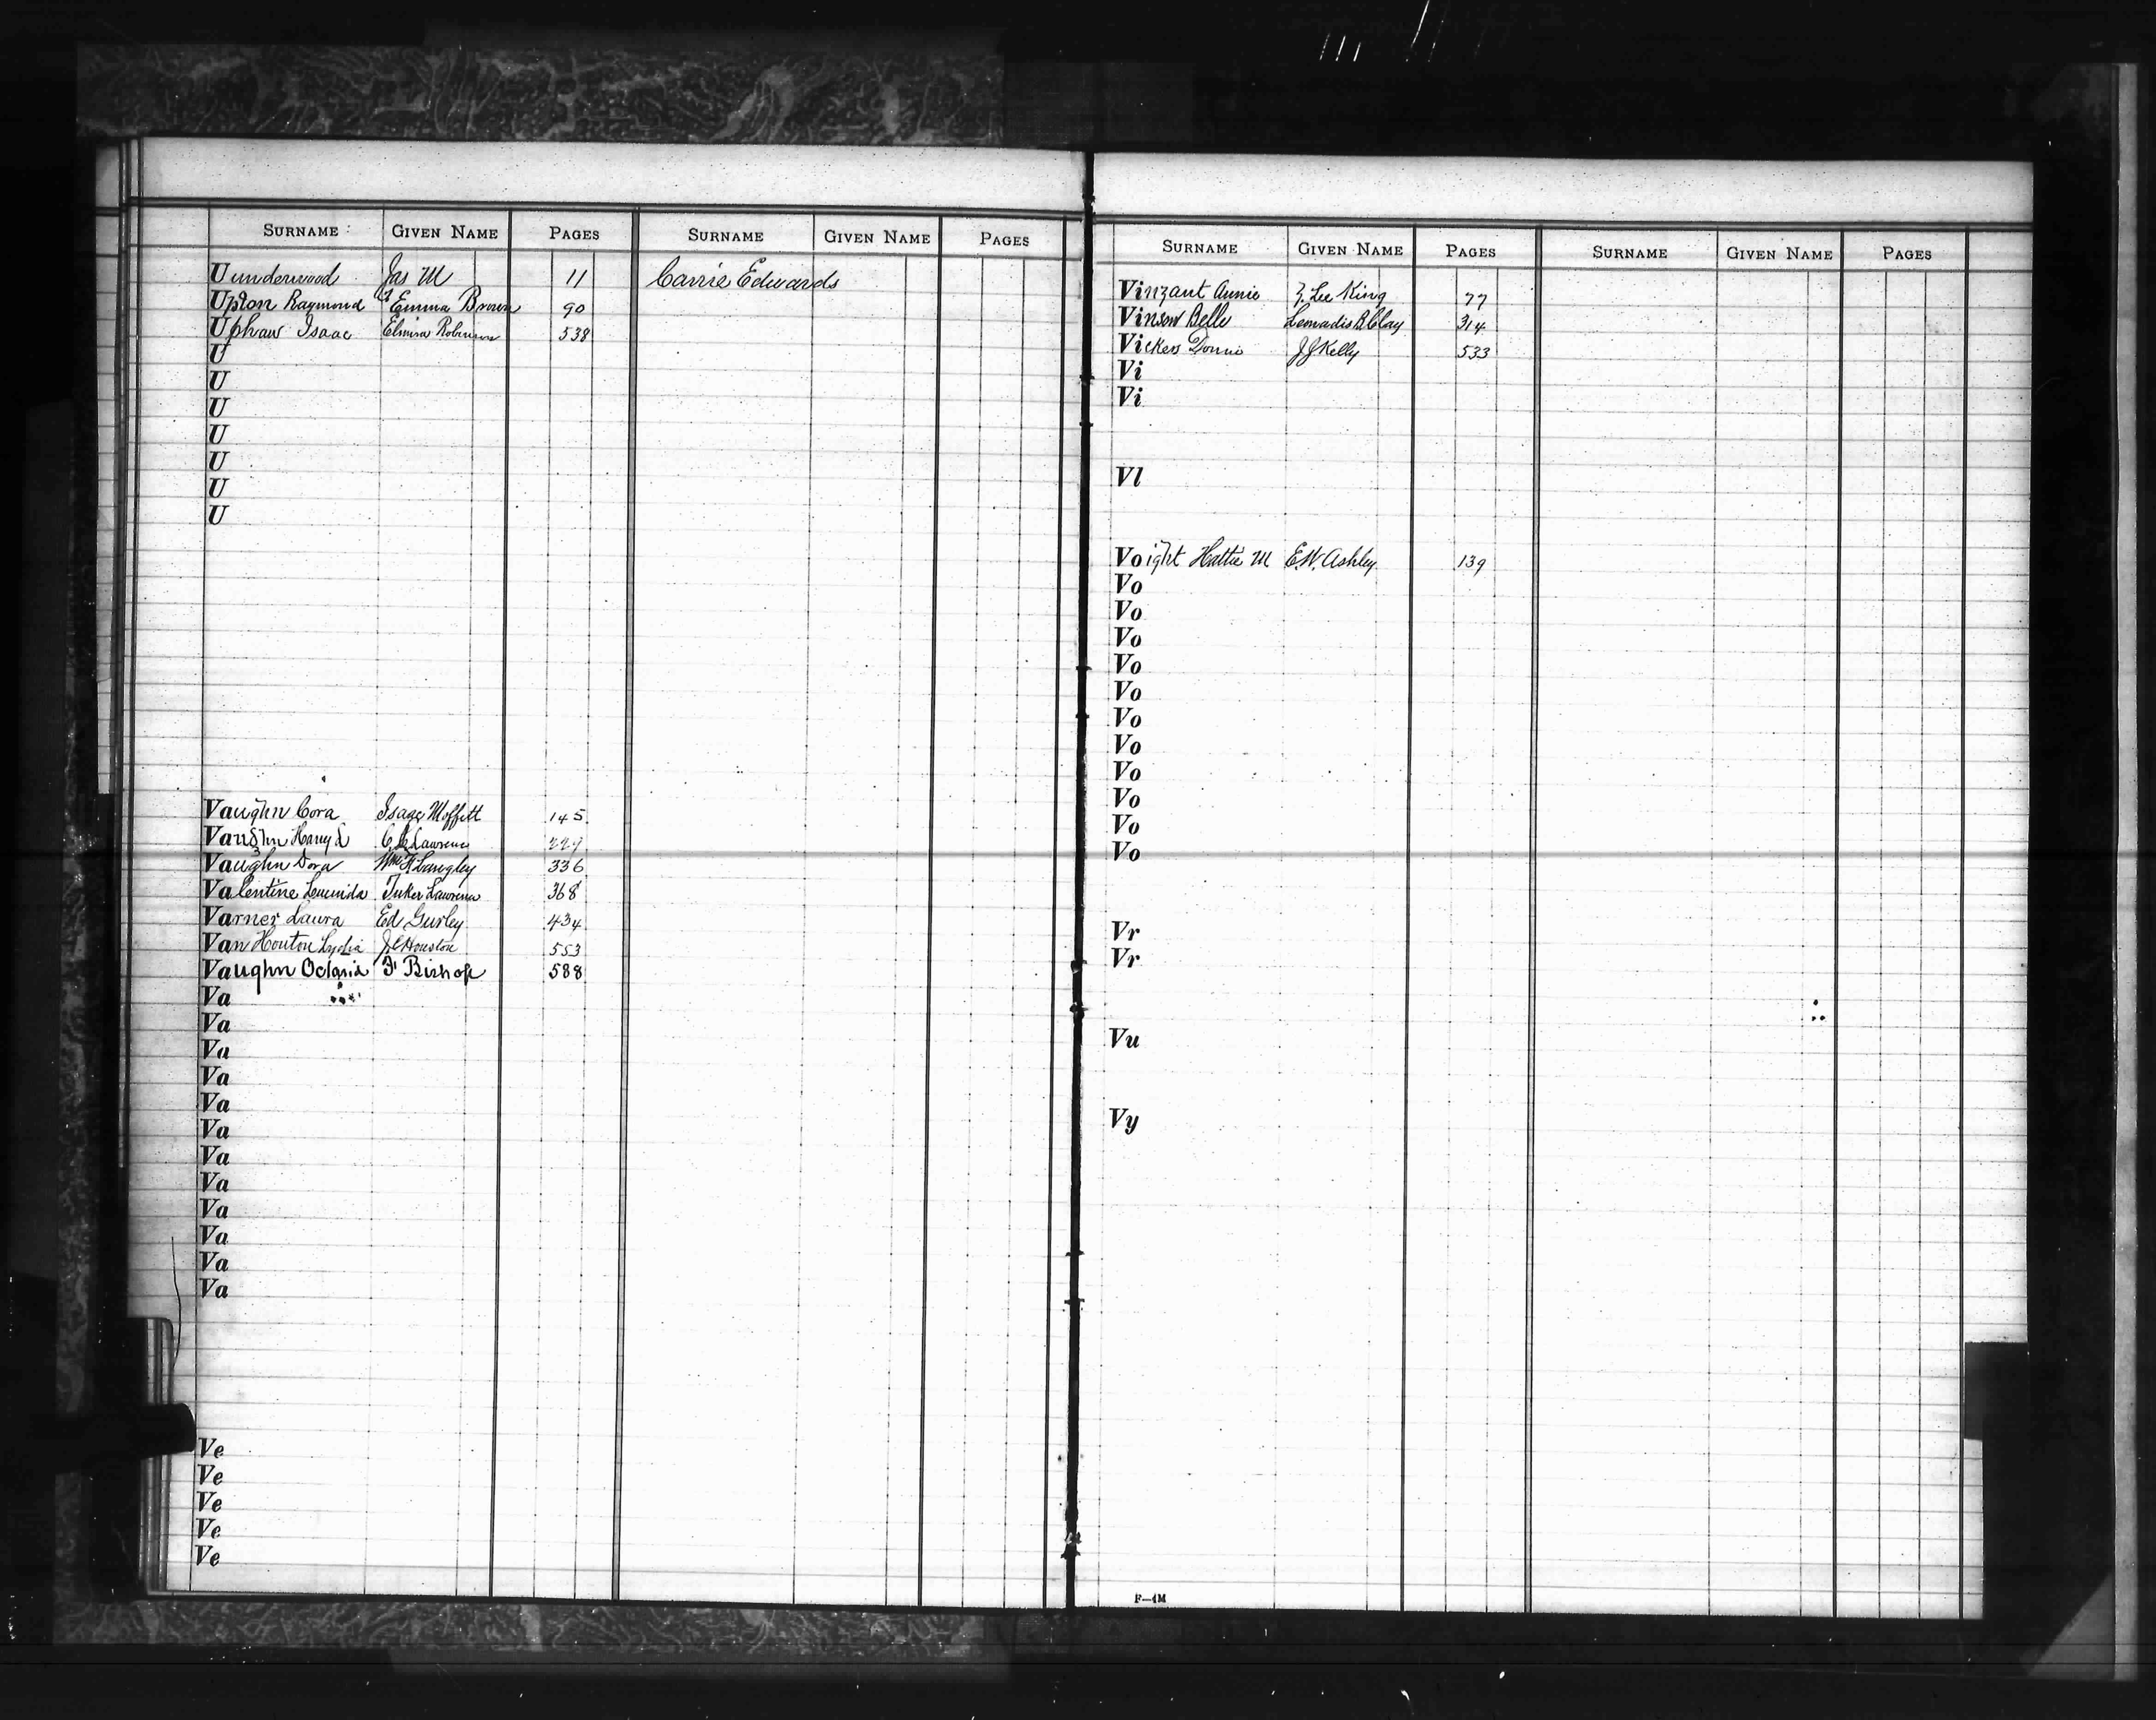 SURNAME GIVEN NAME PAGES SURNAME GIVEN NAME PAGES
U underwood Jas M 11 Carrie Edwards
Upton Raymond & Emma Brown 90
Upshaw Isaac Elmira Robinson 538
U
U
U
U
U
U
U
Vaughn Cora Isaac Moffett 145
Vaughn Lawrence 229
Vaughn Dora Wm H Langley 336
Valentine Lawrence 368
Varner Laura Ed Gurley 434
Van Houton Lydia J C Houston 553
Vaughn Octavia F Bishop 588
Va
Va
Va
Va
Va
Va
Va
Va
Va
Va
Va
Va
Ve
Ve
Ve
Ve
Ve
SURNAME GIVEN NAME PAGES SURNAME GIVEN NAME PAGES
Vinzant Annie Z. Lee King 77
Vinson Belle Leonadis B Clay 314
Vickers Donnie J J Kelly 533
Vi
Vi
Vl
Voight Hattie M E.W. Ashley 139
Vo
Vo
Vo
Vo
Vo
Vo
Vo
Vo
Vo
Vo
Vo
Vr
Vr
Vu
Vy
F—4M